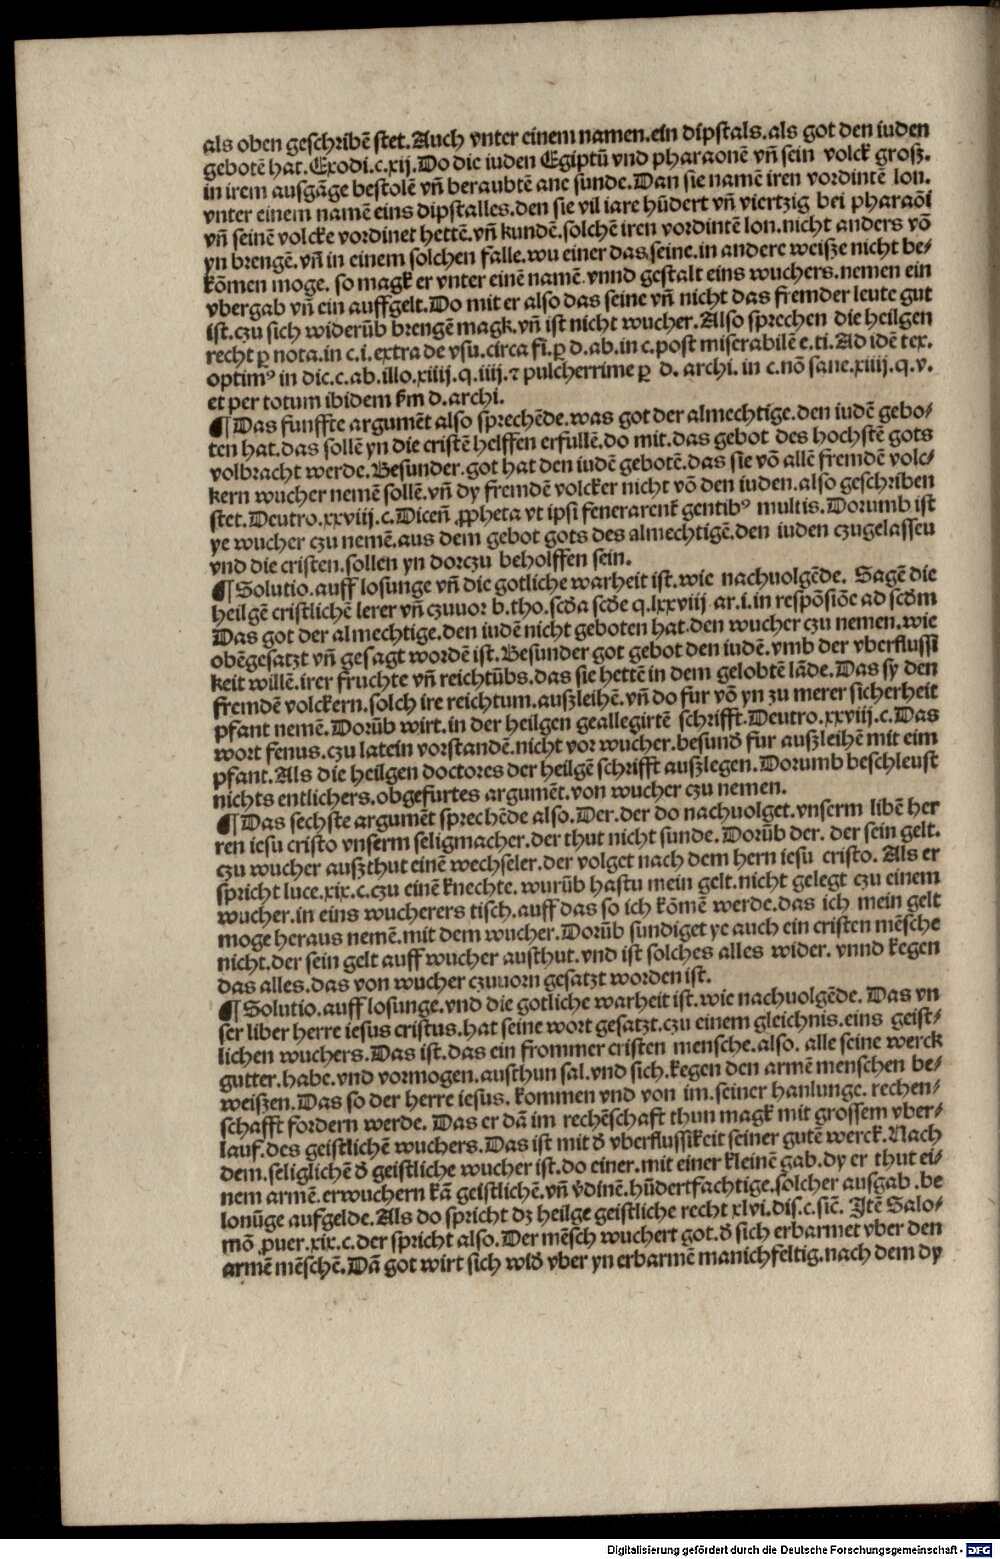 als oben geschribẽ stet. Auch vnter einem namen. ein dipstals. als got den iuden
gebotẽ hat. Exodi. c. xij. Do die iuden Egiptũ vnd pharaonẽ vñ sein volck groß.
in irem ausgãge bestolẽ vñ beraubtẽ ane sunde. Dan sie namẽ iren vordintẽ lon.
vnter einem namẽ eins dipstalles. den sie vil iare hũdert vñ viertzig bei pharaõi
vñ seinẽ volcke vordinet hettẽ. vñ kundẽ. solchẽ iren vordintẽ lon. nicht anders võ
yn brengẽ. vñ in einem solchen falle. wu einer das seine. in andere weisze nicht be⸗
kõmen moge. so magk er vnter einẽ namẽ. vnnd gestalt eins wuchers. nemen ein
vbergab vñ ein auffgelt. Do mit er also das seine vñ nicht das fremder leute gut
ist. czu sich widerũb brengẽ magk. vñ ist nicht wucher. Also sprechen die heilgen
recht ꝑ nota. in c. i. extra de vsu. circa fi. ꝑ d. ab. in c. post miserabilẽ e. ti. Ad idẽ tex.
optimꝰ in dic. c. ab. illo. xiiij. q. iiij. ⁊ pulcherrime ꝑ d. archi. in c. nõ sane. xiiij. q. v.
et per totum ibidem km̃ d. archi.
¶ Das funffte argumẽt also sprechẽde. was got der almechtige. den iudẽ gebo⸗
ten hat. das sollẽ yn die cristẽ helffen erfullẽ. do mit. das gebot des hochstẽ gots
volbracht werde. Besunder. got hat den iudẽ gebotẽ. das sie võ allẽ fremdẽ volc⸗
kern wucher nemẽ sollẽ. vñ dy fremdẽ volcker nicht võ den iuden. also geschriben
stet. Deutro. xxviij. c. Diceñ ꝓpheta vt ipsi fenerarent̃ gentibꝰ multis. Dorumb ist
ye wucher czu nemẽ. aus dem gebot gots des almechtigẽ. den iuden czugelasseu
vnd die cristen. sollen yn dorczu beholffen sein.
¶ Solutio. auff losunge vñ die gotliche warheit ist. wie nachuolgẽde. Sagẽ die
heilgẽ cristlichẽ lerer vñ czuuor b. tho. scđa scđe q. lxxviij ar. i. in respõsiõe ad scđm
Das got der almechtige. den iudẽ nicht geboten hat. den wucher czu nemen. wie
obẽgesatzt vñ gesagt wordẽ ist. Besunder got gebot den iudẽ. vmb der vberflussi
keit willẽ. irer fruchte vñ reichtũbs. das sie hettẽ in dem gelobtẽ lãde. Das sy den
fremdẽ volckern. solch ire reichtum. auszleihẽ. vñ do fur võ yn zu merer sicherheit
pfant nemẽ. Dorũb wirt. in der heilgen geallegirtẽ schrifft. Deutro. xxviij. c. Das
wort fenus. czu latein vorstandẽ. nicht vor wucher. besunđ fur auszleihẽ mit eim
pfant. Als die heilgen doctores der heilgẽ schrifft auszlegen. Dorumb beschleust
nichts entlichers. obgefurtes argumẽt. von wucher czu nemen.
¶ Das sechste argumẽt sprechẽde also. Der. der do nachuolget. vnserm libẽ her
ren iesu cristo vnserm seligmacher. der thut nicht sunde. Dorũb der. der sein gelt.
czu wucher auszthut einẽ wechseler. der volget nach dem hern iesu cristo. Als er
spricht luce. xix. c. czu einẽ knechte. wurũb hastu mein gelt. nicht gelegt czu einem
wucher. in eins wucherers tisch. auff das so ich kõmẽ werde. das ich mein gelt
moge heraus nemẽ. mit dem wucher. Dorũb sundiget ye auch ein cristen mẽsche
nicht. der sein gelt auff wucher austhut. vnd ist solches alles wider. vnnd kegen
das alles. das von wucher czuuorn gesatzt worden ist.
¶ Solutio. auff losunge. vnd die gotliche warheit ist. wie nachuolgẽde. Das vn
ser liber herre iesus cristus. hat seine wort gesatzt. czu einem gleichnis. eins geist⸗
lichen wuchers. Das ist. das ein frommer cristen mensche. also. alle seine werck
gutter. habe. vnd vormogen. austhun sal. vnd sich. kegen den armẽ menschen be⸗
weiszen. Das so der herre iesus. kommen vnd von im. seiner hanlunge. rechen⸗
schafft fordern werde. Das er dã im rechẽschaft thun magk mit grossem vber⸗
lauf. des geistlichẽ wuchers. Das ist mit đ vberflussikeit seiner gutẽ werck. Nach
dem. seliglichẽ đ geistliche wucher ist. do einer. mit einer kleinẽ gab. dy er thut ei⸗
nem armẽ. erwuchern kã geistlichẽ. vñ v̄dinẽ. hũdertfachtige. solcher ausgab. be
lonũge aufgelde. Als do spricht dz heilge geistliche recht xlvi. dis. c. sic̃. Itẽ Salo⸗
mõ ꝓuer. xix. c. der spricht also. Der mẽsch wuchert got. đ sich erbarmet vber den
armẽ mẽschẽ. Dã got wirt sich wiđ vber yn erbarmẽ manichfeltig. nach dem dy
Digitalisierung gefördert durch die Deutsche Forschungsgemeinschaft - DFG